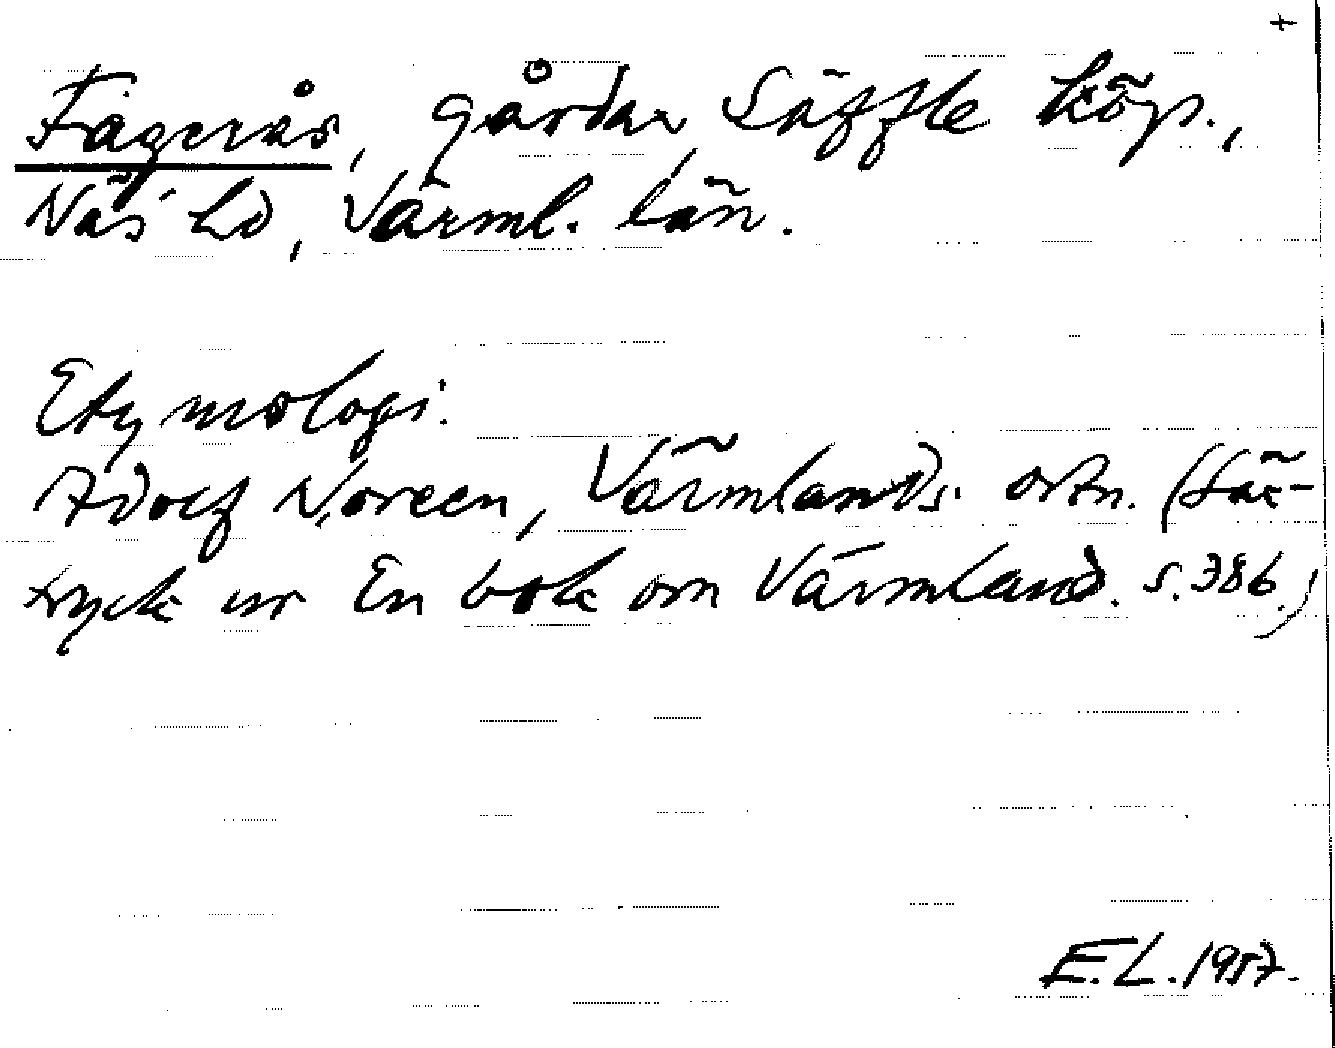 +
Fagerås, gårdar Säffle köp.,
Näs hd, Värml. län.
Etymologi:
Adolf Noreen, Värmlands ortn. (Sär-
tryck ur En bok om Värmland. s. 386.)
E.L. 1957.